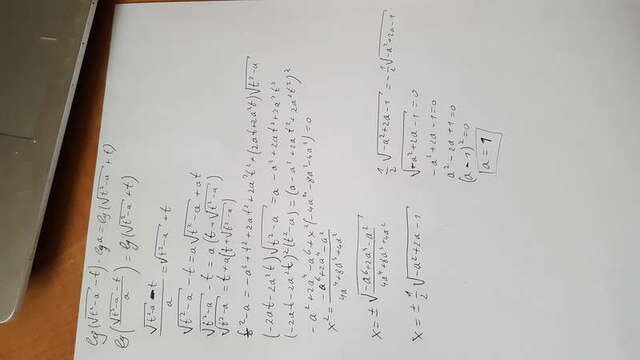 lg(√t²-a - t) - lga = lg(√t²-a + t)
lg(√t²-a - t / a) = lg(√t²-a + t)
√t²-a - t / a = √t²-a + t
√t²-a - t = a√t²-a + at
√t²-a - t = a(t+√t²-a)
√t²-a = t+a(t+√t²-a)
t²-a = -a³+t²+2at²+2a²t²+(2at+2a²t)√t²-a
(-2at-2a²t)√t²-a = a-a³+2at²+2a²t²
(-2at-2a²t)²(t²-a) = (a-a³+2at²+2a²t²)²
-a²+2a⁴-a⁶+x²(-4a⁴-8a³-4a²)=0
x² = -a⁶+2a⁴-a² / 4a⁴+8a³+4a²
x = ±√-a⁶+2a⁴-a² / 4a⁴+8a³+4a²
x = ± 1/2 √-a²+2a-1
1/2 √-a²+2a-1 = -1/2 √-a²+2a-1
√-a²+2a-1 = 0
-a²+2a-1=0
a²-2a+1=0
(a-1)²=0
a = 1